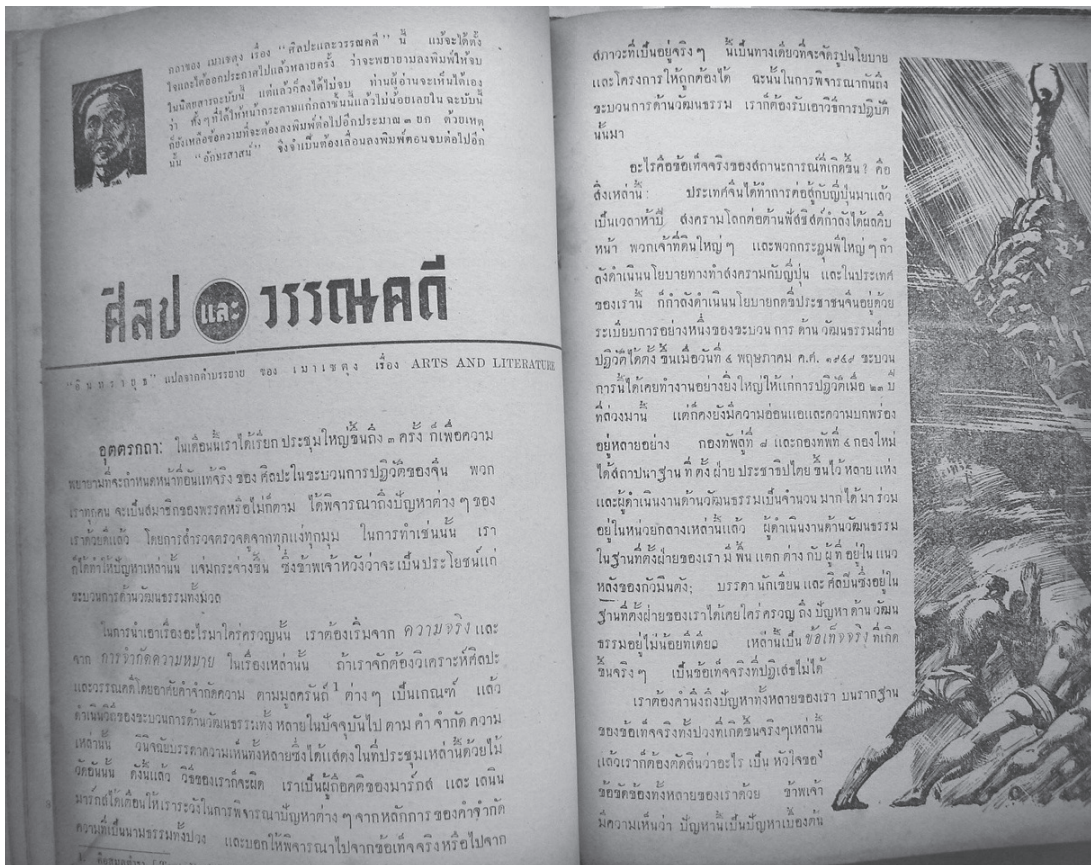 กถาของ เมาเซตุง เรื่อง "ศิลปะและวรรณคดี" นี้ แม้จะได้ตั้ง
ใจและได้ออกประกาศไปแล้วหลายครั้ง ว่าจะพยายามลงพิมพ์ให้จบ
ในนิตยสารฉะบับนี้ แต่แล้วก็ลงได้ไม่จบ ท่านผู้อ่านจะเห็นได้เอง
ว่า ทั้ง ๆ ที่ได้ให้หน้ากระดาษแก่กถาชิ้นนี้แล้วไม่น้อยเลยใน ฉะบับนี้
ก็ยังเหลือข้อความที่จะต้องลงพิมพ์ต่อไปอีกประมาณ ๓ ยก ด้วยเหตุ
นั้น "อักษรสาสน์" จึงจำเป็นต้องเลื่อนลงพิมพ์ตอนจบต่อไปอีก
ศิลป และ วรรณคดี
"อินทรายุธ" แปลจากคำบรรยาย ของ เมาเซตุง เรื่อง ARTS AND LITERATURE
อุตตรกถา: ในเดือนนี้เราได้เรียก ประชุมใหญ่ขึ้นถึง ๓ ครั้ง ก็เพื่อความ
พยายามที่จะกำหนดหน้าที่อันแท้จริง ของ ศิลปะในขะบวนการปฏิวัติของจีน พวก
เราทุกคน จะเป็นสมาชิกของพรรคหรือไม่ก็ตาม ได้พิจารณาถึงปัญหาต่าง ๆ ของ
เราด้วยดีแล้ว โดยการสำรวจตรวจดูจากทุกแง่ทุกมุม ในการทำเช่นนั้น เรา
ก็ได้ทำให้ปัญหาเหล่านั้น แจ่มกระจ่างขึ้น ซึ่งข้าพเจ้าหวังว่าจะเป็นประโยชน์แก่
ขะบวนการด้านวัฒนธรรมทั้งมวล
ในการนำเอาเรื่องอะไรมาใคร่ครวญนั้น เราต้องเริ่มจาก ความจริง และ
จาก การจำกัดความหมาย ในเรื่องเหล่านั้น ถ้าเราจักต้องวิเคราะห์ศิลปะ
และวรรณคดีโดยอาศัยคำจำกัดความ ตามมูลครันถ์ 1 ต่าง ๆ เป็นเกณฑ์ แล้ว
ดำเนินวิถีของขะบวนการด้านวัฒนธรรมทั้ง หลายในปัจจุบันไป ตาม คำ จำกัด ความ
เหล่านั้น วินิจฉัยบรรดาความเห็นทั้งหลายซึ่งได้แสดงในที่ประชุมเหล่านี้ด้วยไม้
วัดอันนั้น ดังนี้แล้ว วิธีของเราก็จะผิด เราเป็นผู้ถือคติของมาร์กส์ และ เลนิน
มาร์กส์ได้เตือนให้เราระวังในการพิจารณาปัญหาต่าง ๆ จากหลักการ ของคำจำกัด
ความที่เป็นนามธรรมทั้งปวง และบอกให้พิจารณาไปจากข้อเท็จจริง หรือไปจาก
สภาวะที่เป็นอยู่จริง ๆ นี้เป็นทางเดียวที่จะจัดรูปนโยบาย
และโครงการให้ถูกต้องได้ ฉะนั้นในการพิจารณากันถึง
ขะบวนการด้านวัฒนธรรม เราก็ต้องรับเอาวิธีการปฏิบัติ
นั้นมา
อะไรคือข้อเท็จจริงของสถานะการณ์ที่เกิดขึ้น? คือ
สิ่งเหล่านี้: ประเทศจีนได้ทำการต่อสู้กับญี่ปุ่นมาแล้ว
เป็นเวลาห้าปี สงครามโลกต่อต้านฟัสซิสต์กำลังได้ผลคืบ
หน้า พวกเจ้าที่ดินใหญ่ ๆ และพวกกระฎุมพีใหญ่ ๆ กำ
ลังดำเนินนโยบายทางทำสงครามกับญี่ปุ่น และในประเทศ
ของเรานี้ ก็กำลังดำเนินนโยบายกดขี่ประชาชนจีนอยู่ด้วย
ระเบียบการอย่างหนึ่งของขะบวน การ ด้าน วัฒนธรรมฝ่าย
ปฏิวัติได้ตั้ง ขึ้นเมื่อวันที่ ๔ พฤษภาคม ค.ศ. ๑๙๔๙ ขะบวน
การนี้ได้เคยทำงานอย่างยิ่งใหญ่ให้แก่การปฏิวัติเมื่อ ๒๓ ปี
ที่ล่วงมานี้ แต่ก็คงยังมีความอ่อนแอและความบกพร่อง
อยู่หลายอย่าง กองทัพลู่ที่ ๘ และกองทัพที่ ๔ กองใหม่
ได้สถาปนาฐาน ที่ ตั้ง ฝ่าย ประชาธิปไตย ขึ้นไว้ หลาย แห่ง
และผู้ดำเนินงานด้านวัฒนธรรมเป็นจำนวน มากได้ มา ร่วม
อยู่ในหน่วยกลางเหล่านี้แล้ว ผู้ดำเนินงานด้านวัฒนธรรม
ในฐานที่ตั้งฝ่ายของเรา มี พื้น แตก ต่าง กับ ผู้ ที่ อยู่ ใน แนว
หลังของกัวมินตัง; บรรดา นักเขียน และ ศิลปินซึ่งอยู่ใน
ฐานที่ตั้งฝ่ายของเราได้เคยใคร่ ครวญ ถึง ปัญหา ด้าน วัฒน
ธรรมอยู่ไม่น้อยทีเดียว เหล่านี้เป็น ข้อเท็จจริง ที่เกิด
ขึ้นจริง ๆ เป็นข้อเท็จจริงที่ปฏิเสธไม่ได้
เราต้องคำนึงถึงปัญหาทั้งหลายของเรา บนรากฐาน
ของข้อเท็จจริงทั้งปวงที่เกิดขึ้นจริงๆเหล่านี้
แล้วเราก็ต้องตัดสินว่าอะไร เป็น หัวใจของ
ข้อขัดข้องทั้งหลายของเราด้วย ข้าพเจ้า
มีความเห็นว่า ปัญหานี้เป็นปัญหาเบื้องต้น